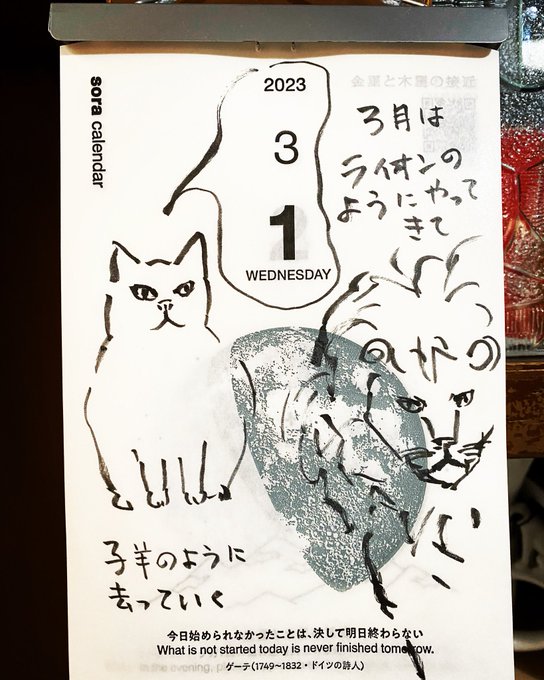 sora calendar
2023
3
1
WEDNESDAY
3月は
ライオンの
ようにやって
きて
子羊のように
去っていく
今日始められなかったことは、決して明日終わらない
What is not started today is never finished tomorrow.
ゲーテ(1749〜1832・ドイツの詩人)